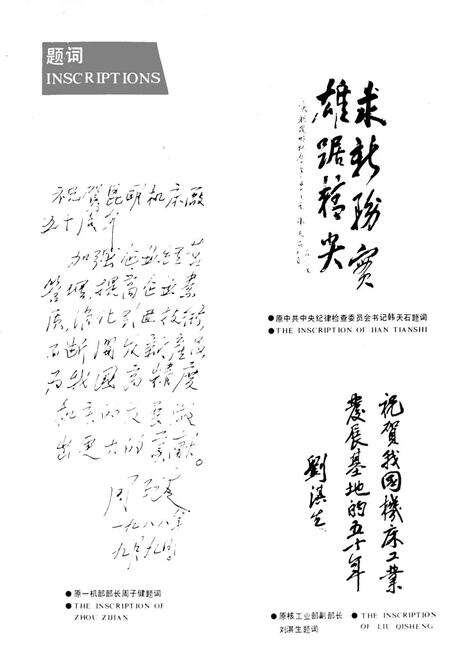 题词
INSCRIPTIONS
祝贺昆明机床厂
五十周年
加强企业经营
管理，提高企业素
质，强化引进技术，
不断开发新产品
为我国高精度
机床的发展做
出更大的贡献。
周子健
一九八六年
九月九日
●原一机部部长周子健题词
●THE INSCRIPTION OF
ZHOU ZIJIAN
求新务实
雄踞榜尖
●原中共中央纪律检查委员会书记韩天石题词
●THE INSCRIPTION OF HAN TIANSHI
祝賀我國機床工業
發展基地的五十年
劉淇生
●原核工业部副部长
刘淇生题词
●THE INSCRIPTION
OF LIU QISHENG